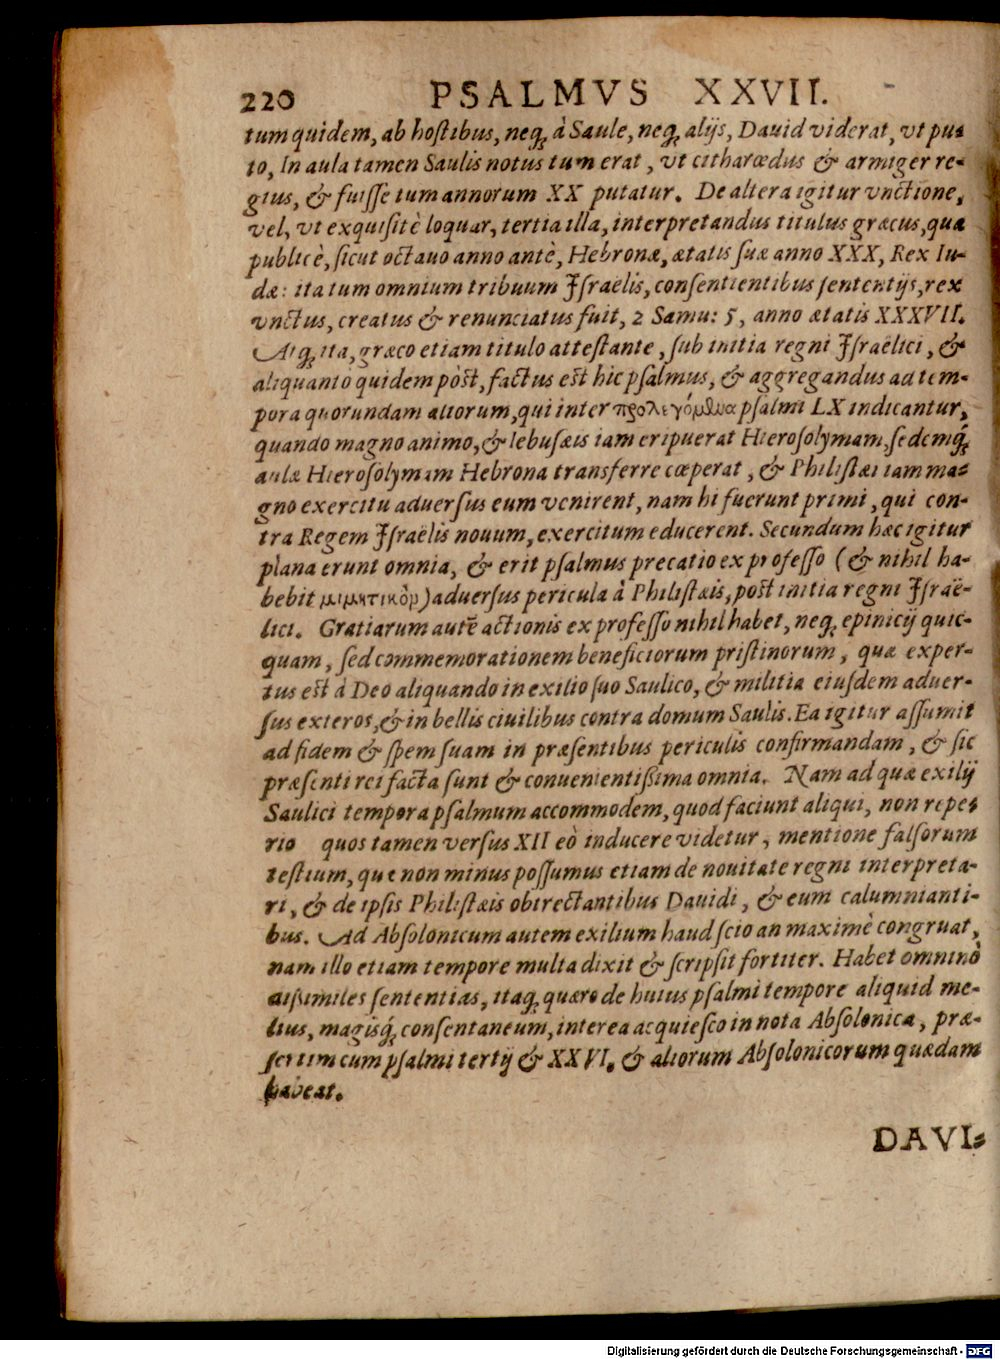 220 PSALMVS XXVII.
tum quidem, ab hostibus, neq; à Saule, neq; alijs, Dauid viderat, vt pu-
to, In aula tamen Saulis notus tum erat, vt citharœdus & armiger re-
gius, & fuisse tum annorum XX putatur. De altera igitur vnctione,
vel, vt exquisitè loquar, tertia illa, interpretandus titulus græcus, qua
publicè, sicut octauo anno antè, Hebronæ, ætatis suæ anno XXX, Rex Iu-
dæ: ita tum omnium tribuum Israëlis, consentientibus sententijs, rex
vnctus, creatus & renunciatus fuit, 2 Samu: 5, anno ætatis XXXVII.
Atq; ita, græco etiam titulo attestante, sub initia regni Israëlici, &
aliquanto quidem pòst, factus est hic psalmus, & aggregandus ad tem-
pora quorundam aliorum, qui inter προλεγόμϑυα psalmi LX indicantur,
quando magno animo, & Iebusæis iam eripuerat Hierosolymam, sedemq;
aulæ Hierosolymam Hebrona transferre cœperat, & Philistæi iam ma-
gno exercitu aduersus eum venirent, nam hi fuerunt primi, qui con-
tra Regem Israëlis nouum, exercitum educerent. Secundum hæc igitur
plana erunt omnia, & erit psalmus precatio ex professo (& nihil ha-
bebit μιμητικὸν) aduersus pericula à Philistæis, post initia regni Israë-
lici. Gratiarum autē actionis ex professo nihil habet, neq; epinicij quic-
quam, sed commemorationem beneficiorum pristinorum, quæ exper-
tus est à Deo aliquando in exilio suo Saulico, & militia eiusdem aduer-
sus exteros, & in bellis ciuilibus contra domum Saulis. Ea igitur assumit
ad fidem & spem suam in præsentibus periculis confirmandam, & sic
præsenti rei facta sunt & conuenientißima omnia. Nam ad quæ exilij
Saulici tempora psalmum accommodem, quod faciunt aliqui, non repe-
rio quos tamen versus XII eò inducere videtur, mentione falsorum
testium, quæ non minus possumus etiam de nouitate regni interpreta-
ri, & de ipsis Philistæis obtrectantibus Dauidi, & eum calumnianti-
bus. Ad Absolonicum autem exilium haud scio an maximè congruat,
nam illo etiam tempore multa dixit & scripsit fortiter. Habet omninò
aißimiles sententias, itaq; quæro de huius psalmi tempore aliquid me-
lius, magisq́; consentaneum, interea acquiesco in nota Absolonica, præ-
sertim cum psalmi tertij & XXVI. & aliorum Absolonicorum quædam
habeat.
DAVI-
Digitalisierung gefördert durch die Deutsche Forschungsgemeinschaft - DFG